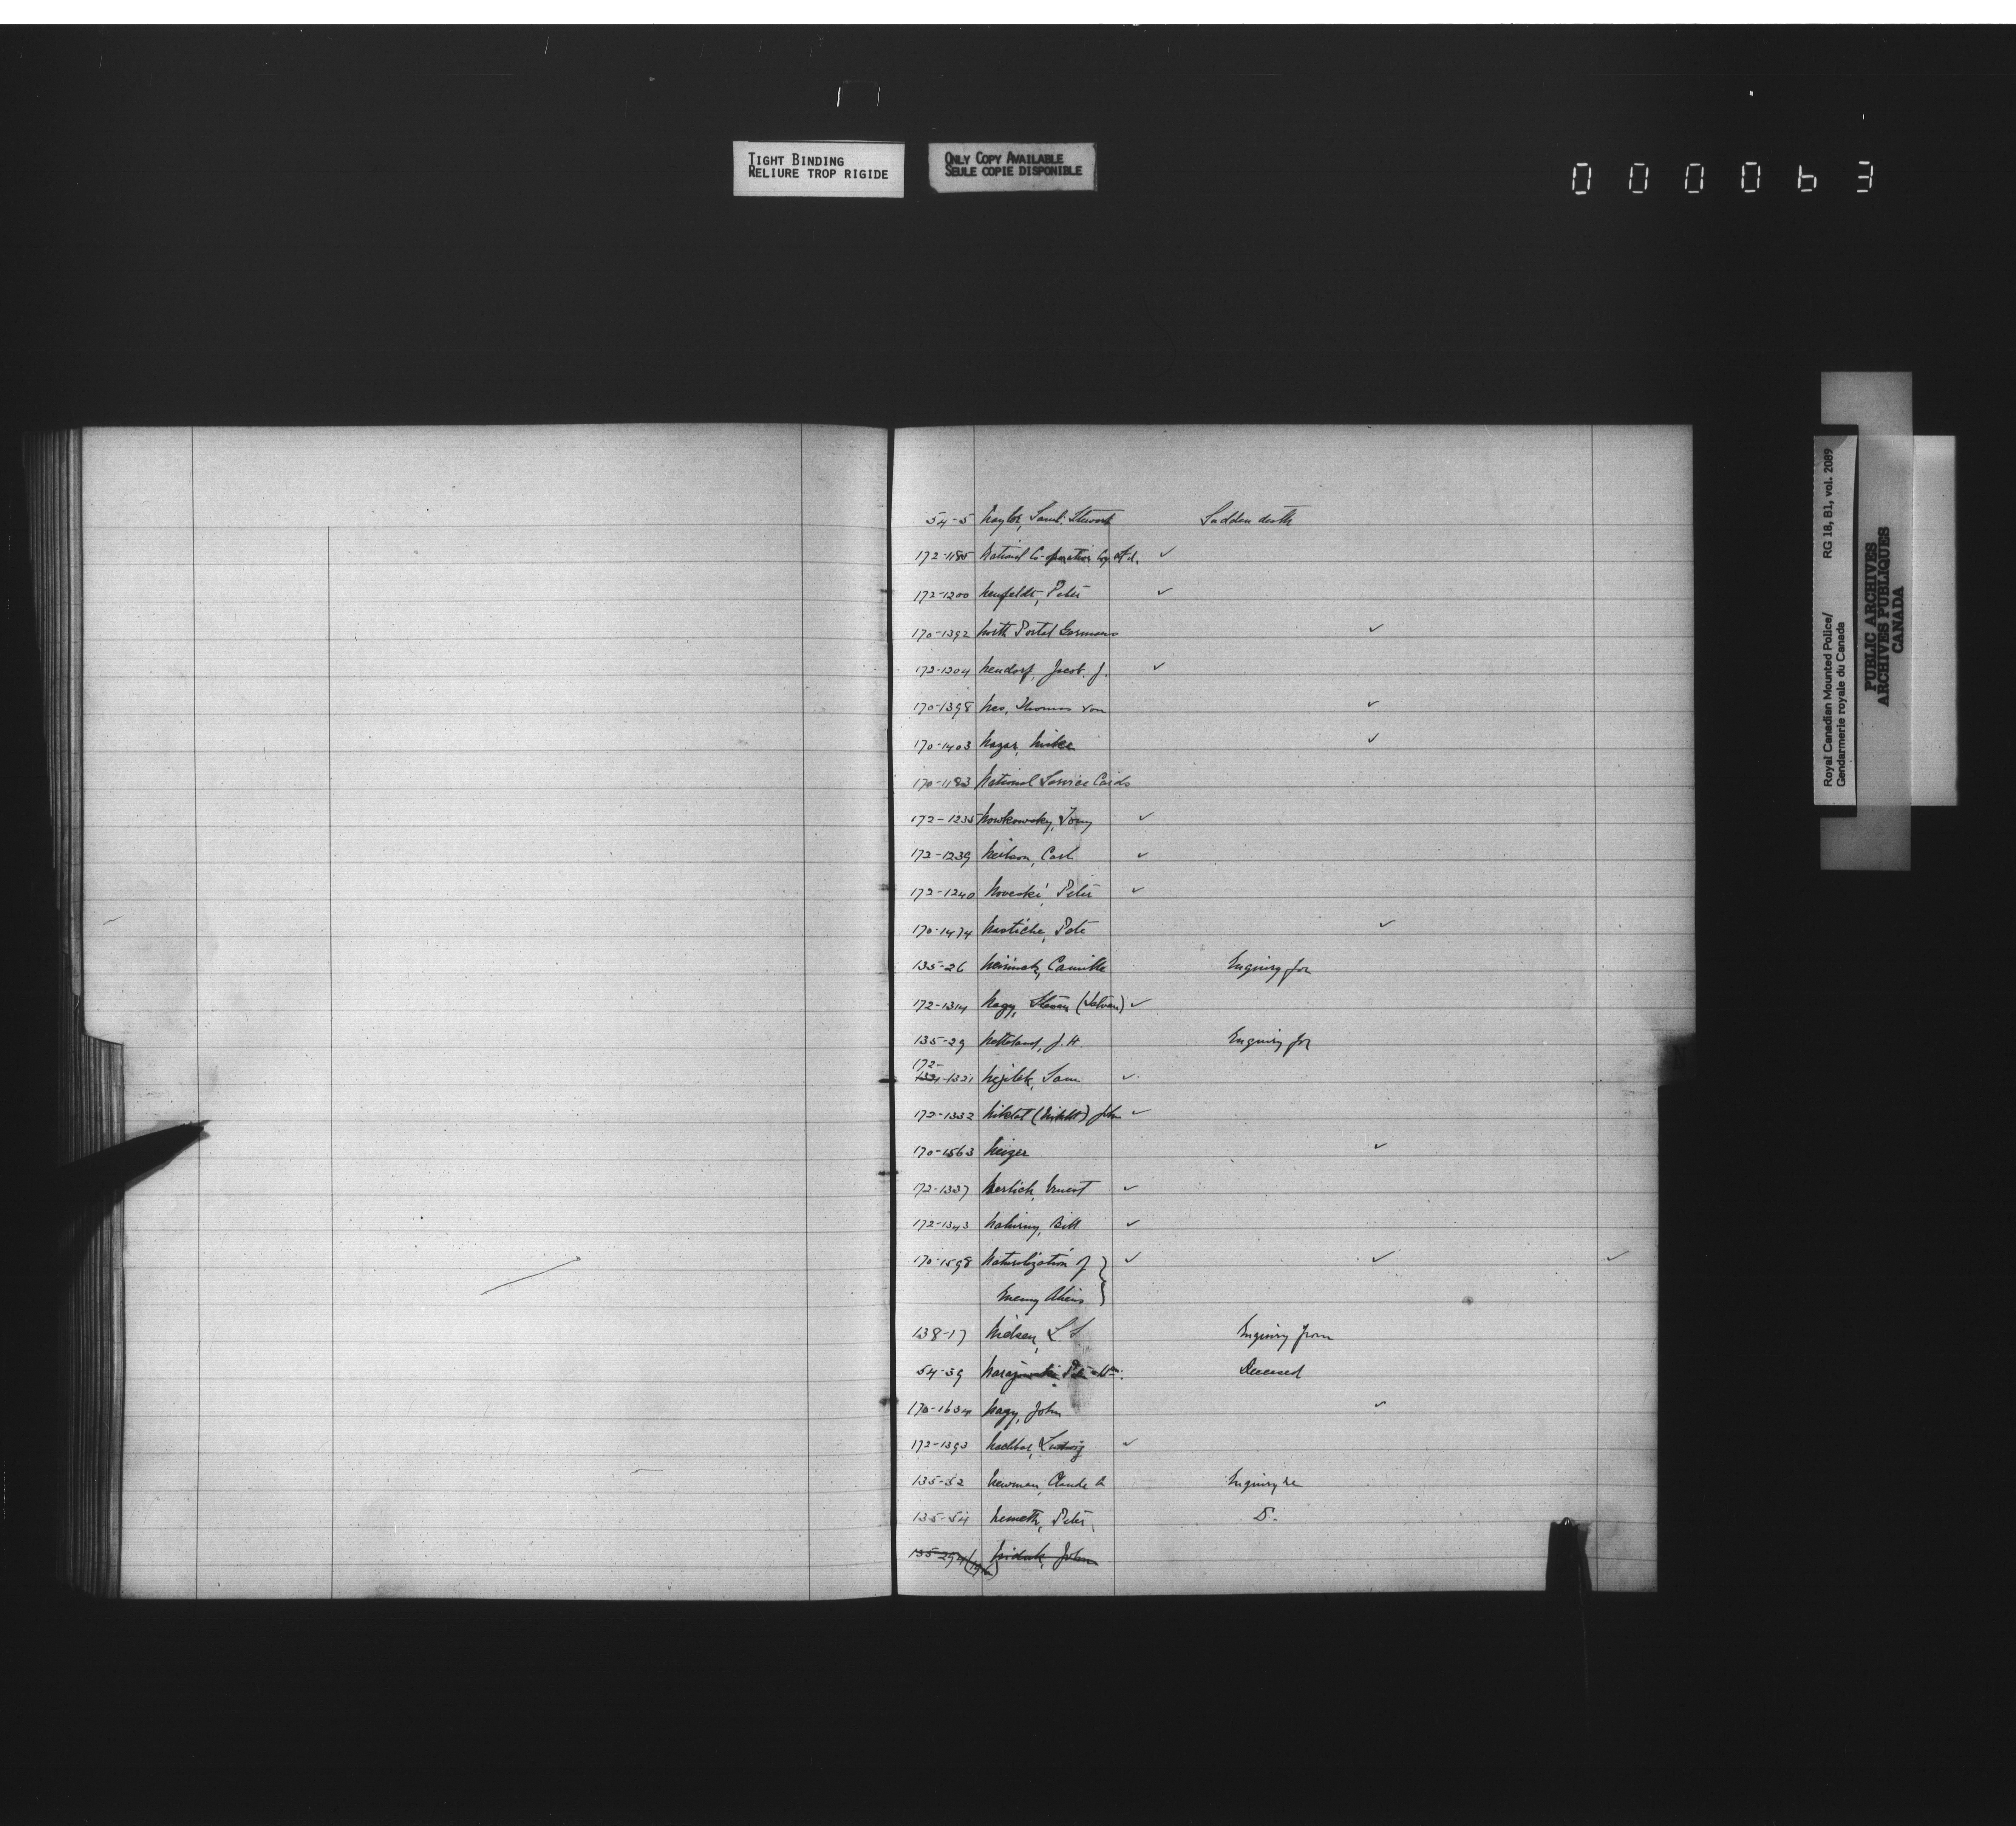 TIGHT BINDING
RELIURE TROP RIGIDE
ONLY COPY AVAILABLE
SEULE COPIE DISPONIBLE
000063
Royal Canadian Mounted Police/ RG 18, B1, vol. 2089
Gendarmerie royale du Canada
PUBLIC ARCHIVES
ARCHIVES PUBLIQUES
CANADA
54-5 Naylor, Saml. Stewart Sudden death
172-1185 National Co-operative Coy Ltd. ✓
172-1200 Neufeldt, Peter ✓
170-1392 North Portal Germans ✓
172-1204 Neudorf, Jacob. J. ✓
170-1398 Nes, Thomas von ✓
170-1403 Nazar, Mike ✓
170-1183 National Service Cards
172-1235 Nowkowsky, Tony ✓
172-1239 Neilson, Carl ✓
172-1240 Noveski, Peter ✓
170-1474 Nastiche, Pete ✓
135-26 Camille Enquiry for
172-1314 Nagy, Steven (Istvan) ✓
135-29 Netteland, J. H. Enquiry for
172-
1321 Nejilek, Sam ✓
172-1332 John ✓
170-1563 Neiger ✓
172-1337 Nerlich, Ernest ✓
172-1343 Nahirny, Bill ✓
170-1598 Naturalization of ✓ ✓ ✓
Enemy Aliens
138-17 Nielsen, L. S. Enquiry from
54-39 Deceased
170-1634 Nagy, John ✓
172-1393 Ludwig ✓
135-52 Newman, Claude A Enquiry re
135-54 Nemeth, Peter D.
John